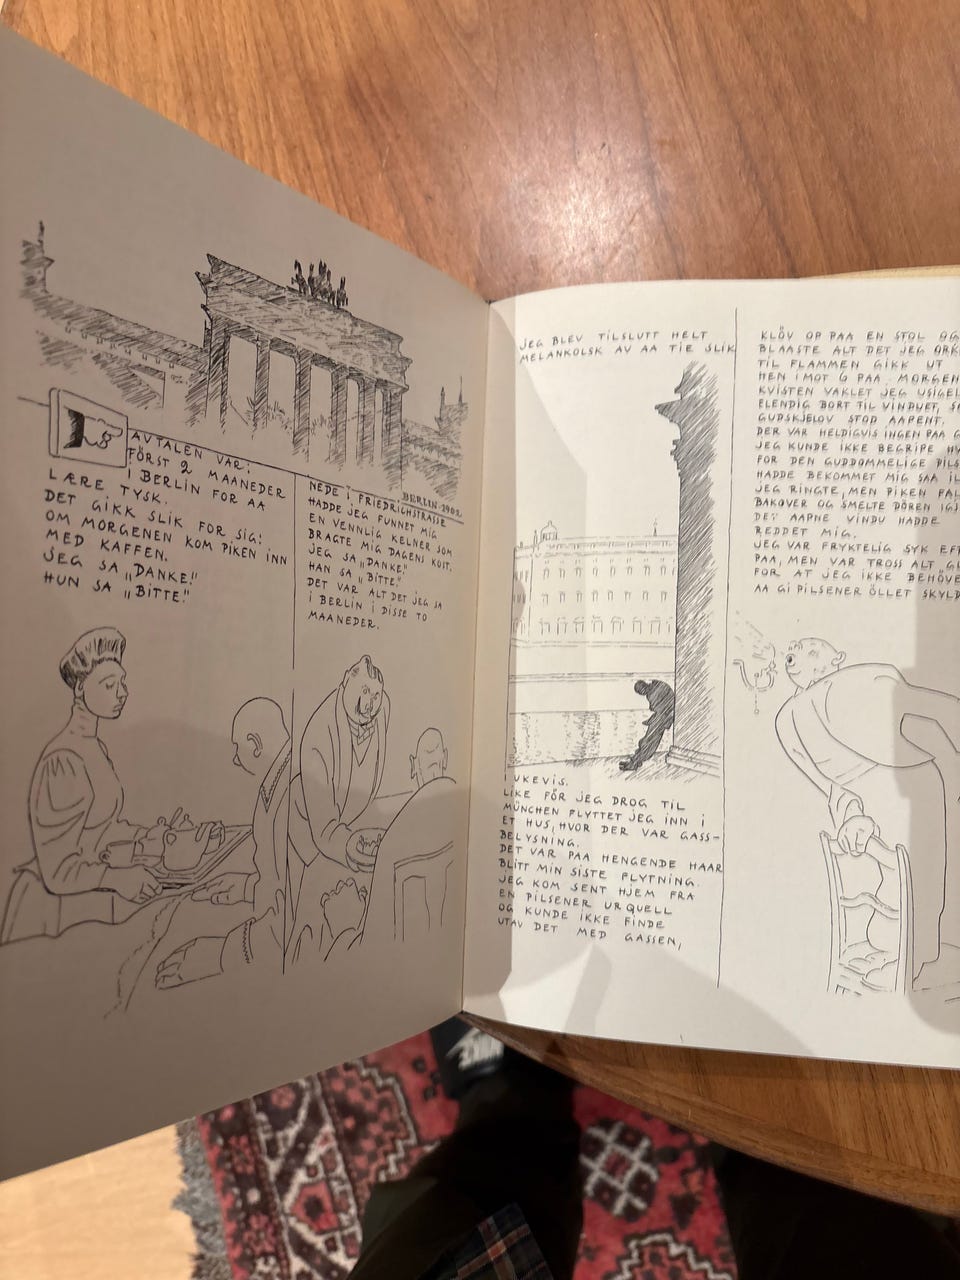 BERLIN-1902
AVTALEN VAR:
FÖRST 2 MAANEDER
I BERLIN FOR AA
LÆRE TYSK.
DET GIKK SLIK FOR SIG:
OM MORGENEN KOM PIKEN INN
MED KAFFEN.
JEG SA „DANKE!"
HUN SA „BITTE."
NEDE I FRIEDRICHSTRASSE
HADDE JEG FUNNET MIG
EN VENNLIG KELNER SOM
BRAGTE MIG DAGENS KOST.
JEG SA „DANKE."
HAN SA „BITTE."
DET VAR ALT DET JEG SA
I BERLIN I DISSE TO
MAANEDER.
JEG BLEV TILSLUTT HELT
MELANKOLSK AV AA TIE SLIK
UKEVIS.
LIKE FÖR JEG DROG TIL
MÜNCHEN FLYTTET JEG INN I
ET HUS, HVOR DER VAR GASS-
BELYSNING.
DET VAR PAA HENGENDE HAAR
BLITT MIN SISTE FLYTNING.
JEG KOM SENT HJEM FRA
EN PILSENER URQUELL
OG KUNDE IKKE FINDE
UTAV DET MED GASSEN,
KLÖV OP PAA EN STOL OG
BLAASTE ALT DET JEG
TIL FLAMMEN GIKK UT
HEN IMOT 6 PAA
KVISTEN VAKLET JEG
ELENDIG BORT TIL VINDUET,
GUDSKJELOV STOD AAPENT.
DER VAR HELDIGVIS INGEN PAA
JEG KUNDE IKKE BEGRIPE
FOR DEN GUDDOMMELIGE
HADDE BEKOMMET MIG SAA
JEG RINGTE, MEN PIKEN
BAKOVER OG SMELTE DÖREN
DET AAPNE VINDU HADDE
REDDET MIG.
JEG VAR FRYKTELIG SYK
PAA, MEN VAR TROSS ALT
FOR AT JEG IKKE
AA GI PILSENER ÖLLET